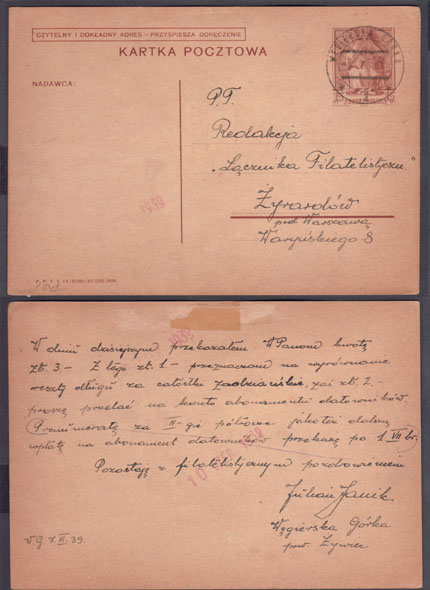 CZYTELNY I DOKŁADNY ADRES - PRZYSPIESZA DORĘCZENIE
KARTKA POCZTOWA
NADAWCA:
WĘGIERSKA GÓRKA
P.T.
Redakcja
"Łącznika Filatelistyczn."
Żyrardów
pod Warszawą
Waryńskiego 8
1939
W dniu dzisiejszym przekazałem WPanom kwotę
zł. 3.- Z tego zł. 1.- przeznaczam na wyrównanie
reszty długu za całostki zaolziańskie, zaś zł. 2.-
proszę przelać na konto abonamentu datowników.
Prenumeratę za II-gie półrocze jakoteż dalszą
wpłatę na abonament datowników przekażę po 1 VII br.
Pozostaję z filatelistycznym pozdrowieniem
Julian Janik
Węgierska Górka
pow. Żywiec